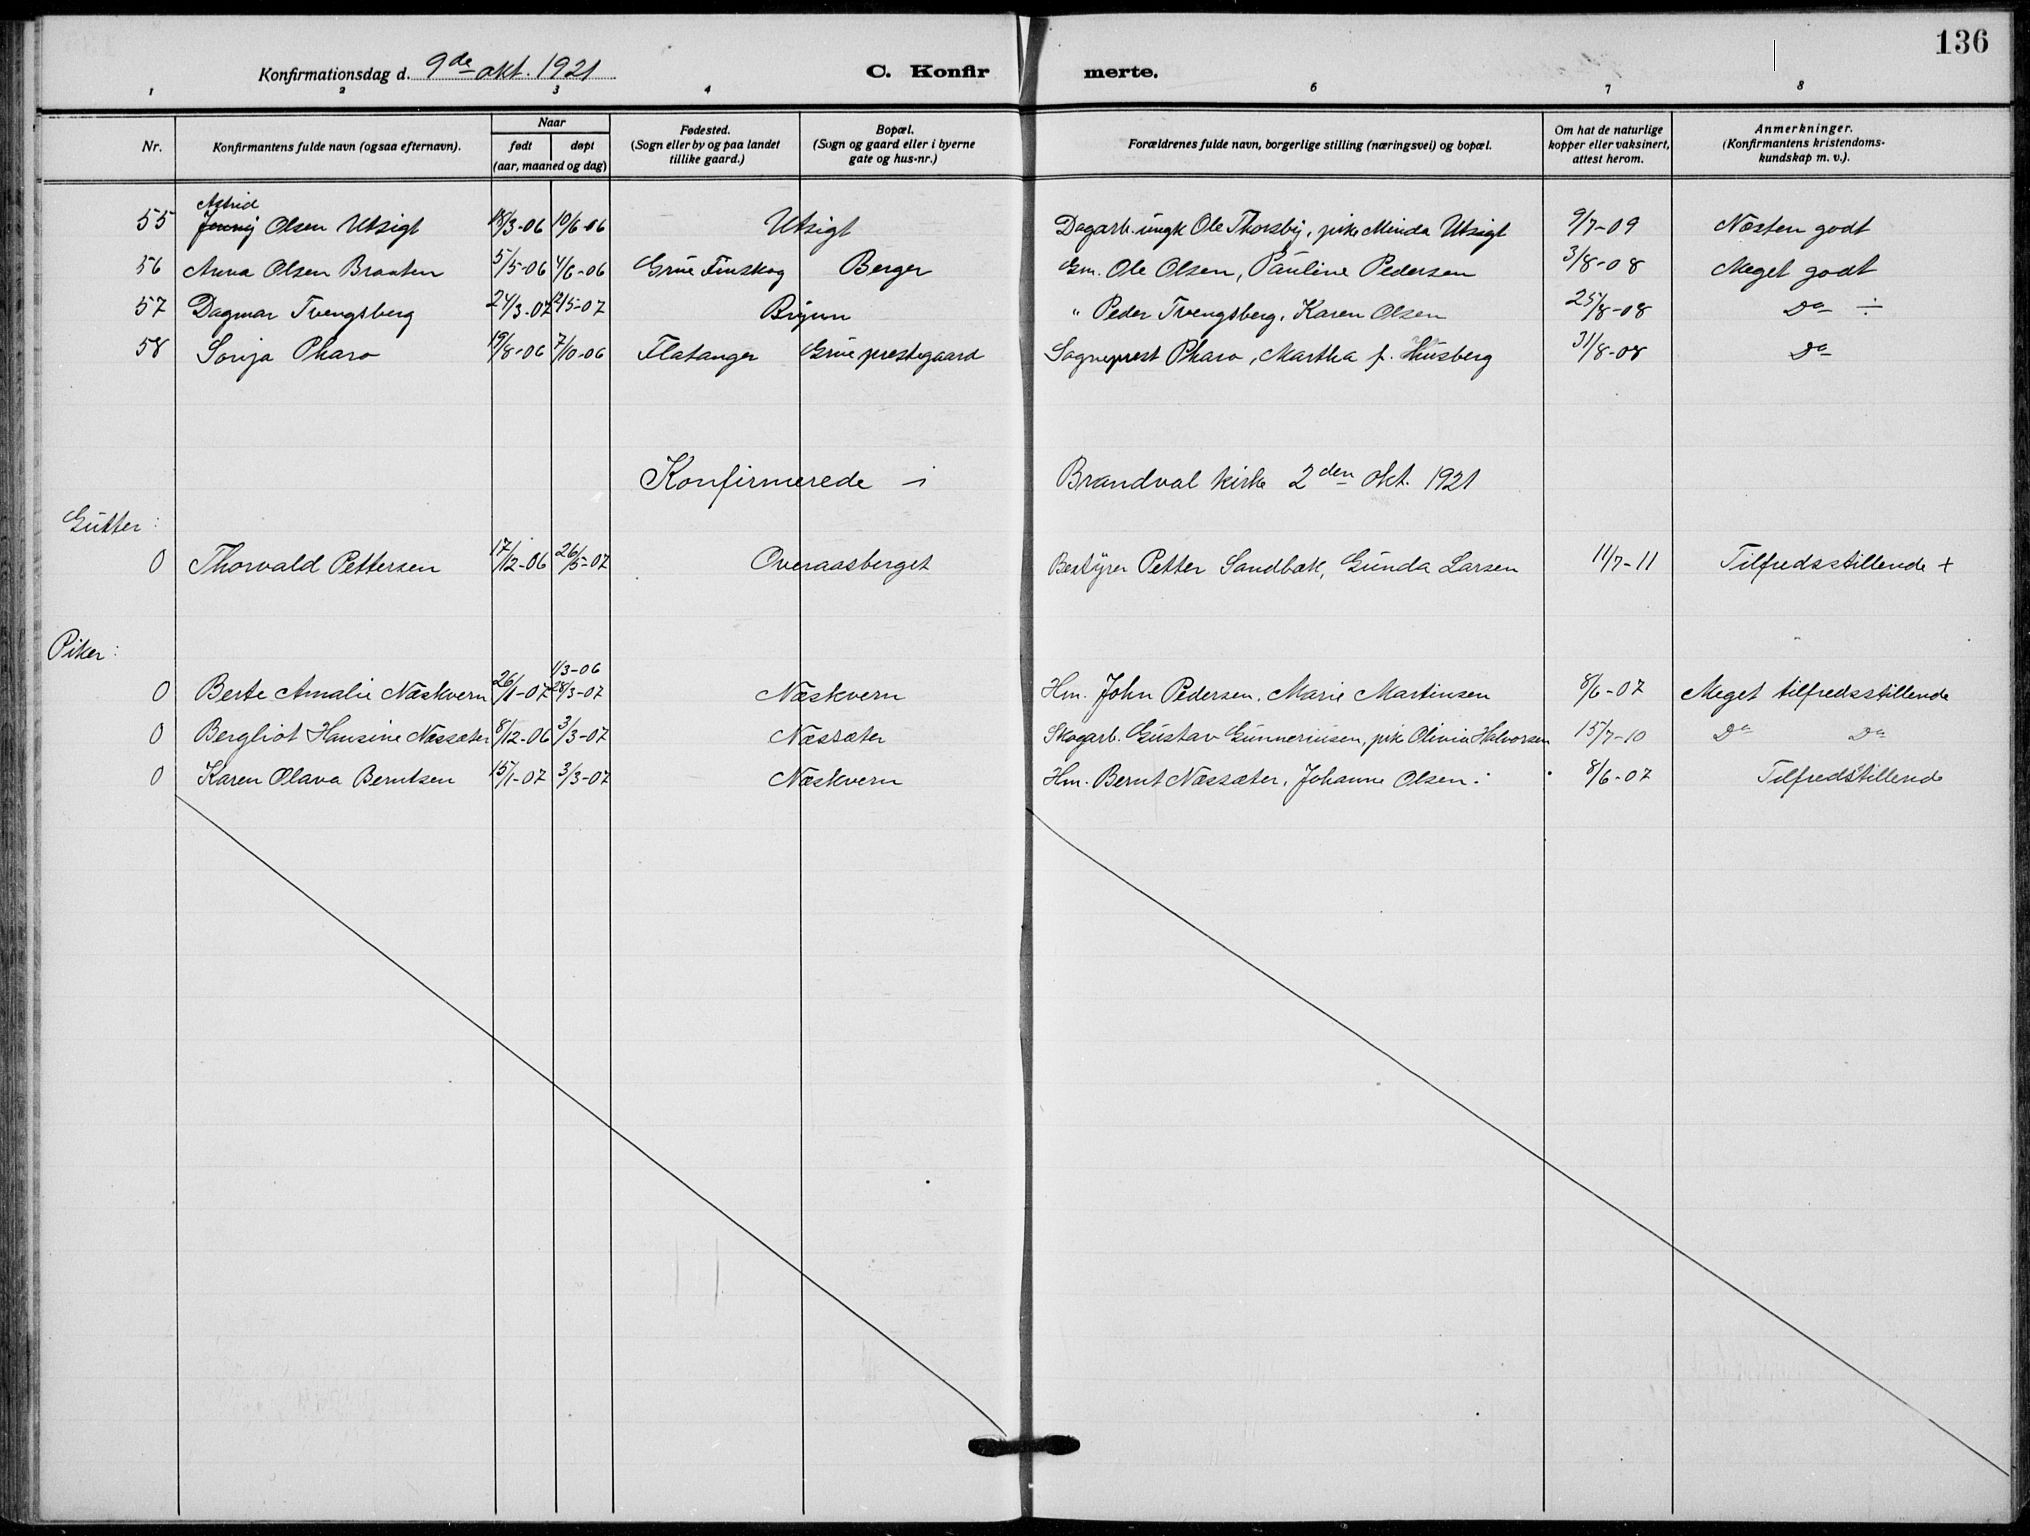 136
Konfirmationsdag d. 9de okt. 1921 C. Konfirmerte.
1 2 3 4 6 7 8
Nr. Konfirmantens fulde navn (ogsaa efternavn). Naar født døpt (aar, maaned og dag) Fødested. (Sogn eller by og paa landet tillike gaard.) Bopæl. (Sogn og gaard eller i byerne gate og hus-nr.) Forældrenes fulde navn, borgerlige stilling (næringsvei) og bopæl. Om hat de naturlige kopper eller vaksinert, attest herom. Anmerkninger. (Konfirmantens kristendomskundskap m. v.).
Astrid
55 Jenny Olsen Utsigt 18/3-06 10/6-06 Utsigt Dagarb. ungk Ole Thorsby, pike Minda Utsigt 9/7-09 Næsten godt
56 Anna Olsen Braaten 5/5-06 4/6-06 Grue Finskog Berger Gm. Ole Olsen, Pauline Pedersen 3/8-08 Meget godt
57 Dagmar Tvengsberg 24/3-07 12/5-07 Bryun " Peder Tvengsberg, Karen Olsen 25/8-08 Do ÷
58 Sonja Pharo 19/8-06 7/10-06 Flatanger Grue prestegaard Sogneprest Pharo, Martha f. Husberg 31/8-08 Do
Konfirmerede i Brandval kirke 2den okt. 1921
Gutter:
0 Thorvald Pettersen 17/12-06 26/5-07 Overaasberget Bestyrer Petter Sandbæk, Gunda Larsen 11/7-11 Tilfredsstillende +
Piker:
1/3-06
0 Berte Amalie Næskvern 26/1-07 28/3-07 Næskvern Hm. John Pedersen, Marie Martinsen 8/6-07 Meget tilfredsstillende
0 Bergliot Hansine Næssæter 8/12-06 3/3-07 Næssæter Skogarb. Gustav Gunneriusen, pik Olivia Halvorsen 15/7-10 Do Do
0 Karen Olava Berntsen 15/1-07 3/3-07 Næskvern Hm. Bernt Næssæter, Johanne Olsen. 8/6-07 Tilfredstillende